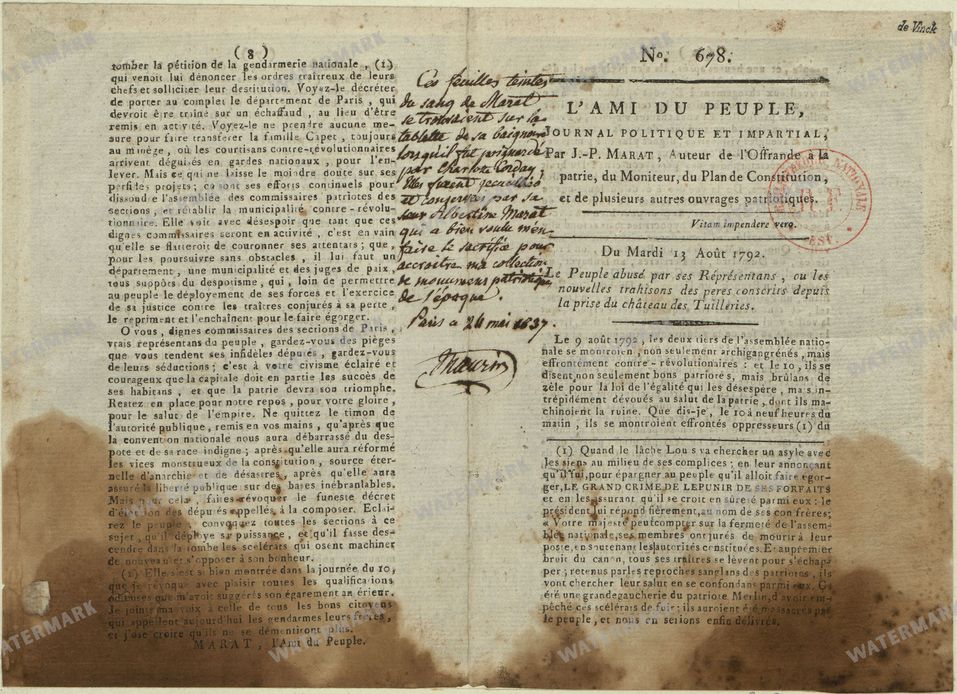 de Vinck
(8)
tomber la pétition de la gendarmerie nationale, (1)
qui venoit lui dénoncer les ordres traîtreux de leurs
chefs et solliciter leur destitution. Voyez-le décréter
de porter au complet le département de Paris, qui
devroit être traîné sur un échaffaud, au lieu d'être
remis en activité. Voyez-le ne prendre aucune me-
sure pour faire transférer la famille Capet, toujours
au minèze, où les courtisans contre-révolutionnaires
arrivent déguisés en gardes nationaux, pour l'en-
lever. Mais ce qui ne laisse le moindre doute sur ses
perfides projets; ce sont ses efforts continuels pour
dissoudre l'assemblée des commissaires patriotes des
sections, et rétablir la municipalité contre-révolu-
tionnaire. Elle voit avec désespoir que tant que ces
dignes commissaires seront en activité, c'est en vain
qu'elle se flatteroit de couronner ses attentats; que,
pour les poursuivre sans obstacles, il lui faut un
département, une municipalité et des juges de paix,
tous suppôts du despotisme, qui, loin de permettre
au peuple le déployement de ses forces et l'exercice
de sa justice contre les traîtres conjurés à sa perte,
le repriment et l'enchaînent pour le faire égorger.
O vous, dignes commissaires des sections de Paris,
vrais représentans du peuple, gardez-vous des pièges
que vous tendent ses infidèles députés, gardez-vous
de leurs séductions; c'est à votre civisme éclairé et
courageux que la capitale doit en partie les succès de
ses habitans, et que la patrie devra son triomphe.
Restez en place pour notre repos, pour votre gloire,
pour le salut de l'empire. Ne quittez le timon de
l'autorité publique, remis en vos mains, qu'après que
la convention nationale nous aura débarrassé du des-
pote et de sa race indigne; après qu'elle aura réformé
les vices monstrueux de la constitution, source éter-
nelle d'anarchie et de désastres, après qu'elle aura
assuré la liberté publique sur des bases inébranlables.
Mais pour cela, faites révoquer le funeste décret
d'élection des députés appellés à la composer. Eclai-
rez le peuple, convoquez toutes les sections à ce
sujet, qu'il déploye sa puissance, et qu'il fasse des-
cendre dans la tombe les scélérats qui osent machiner
de nouveau et s'opposer à son bonheur.
(1) Elle s'est si bien montrée dans la journée du 10,
que je révoque avec plaisir toutes les qualifications
odieuses que m'avoit suggérés son égarement antérieur.
Je joints ma voix à celle de tous les bons citoyens
qui appellent aujourd'hui les gendarmes leurs frères,
et j'ose croire qu'ils ne se démentiront plus.
MARAT, l'Ami du Peuple.
Ces feuilles teintes
du sang de Marat
se trouvaient sur la
tablette de sa baignoire
lorsqu'il fut poignardé
par Charlotte Corday;
Elles furent recueillies
et conservées par sa
sœur Albertine Marat
qui a bien voulu m'en
faire le sacrifice pour
accroitre ma collection
de monumens patriotiques
de l'époque.
Paris ce 26 mai 1837.
Maurin
No. 678.
L'AMI DU PEUPLE,
JOURNAL POLITIQUE ET IMPARTIAL,
Par J.-P. MARAT, Auteur de l'Offrande à la
patrie, du Moniteur, du Plan de Constitution,
et de plusieurs autres ouvrages patriotiques.
Vitam impendere vero.
Du Mardi 13 Août 1792.
Le Peuple abusé par ses Réprésentans, ou les
nouvelles trahisons des peres conscrits depuis
la prise du château des Tuilleries.
Le 9 août 1792, les deux tiers de l'assemblée natio-
nale se montroient, non seulement archigangrénés, mais
effrontément contre-révolutionaires: et le 10, ils se
disent non seulement bons patriotes, mais brûlans de
zèle pour la loi de l'égalité qui les désespère, mais in-
trépidément dévoués au salut de la patrie, dont ils ma-
chinoient la ruine. Que dis-je, le 10 à neuf heures du
matin, ils se montroient effrontés oppresseurs (1) du
(1) Quand le lâche Louis va chercher un asyle avec
les siens au milieu de ses complices; en leur annonçant
qu'il fui, pour épargner au peuple qu'il alloit faire égor-
ger, LE GRAND CRIME DE LE PUNIR DE SES FORFAITS
et en les assurant qu'il se croit en sûreté parmi eux: le
président lui répond fièrement, au nom de ses confrères;
« Votre majesté peut compter sur la fermeté de l'assem-
blée nationale, ses membres ont jurés de mourir à leur
poste, en soutenant les autorités constituées. Et au premier
broit du canon, tous ses traîtres se lèvent pour s'échap-
per; retenus par les reproches sanglans des patriotes, ils
vont chercher leur salut en se confondans parmi eux. Ç'a
été une grande gaucherie du patriote Merlin, d'avoir em-
pêché ces scélerats de fuir; ils auroient été massacrés par
le peuple, et nous en serions enfin délivrés.
BIBLIOTHÈQUE NATIONALE
R F
EST.
WATERMARK